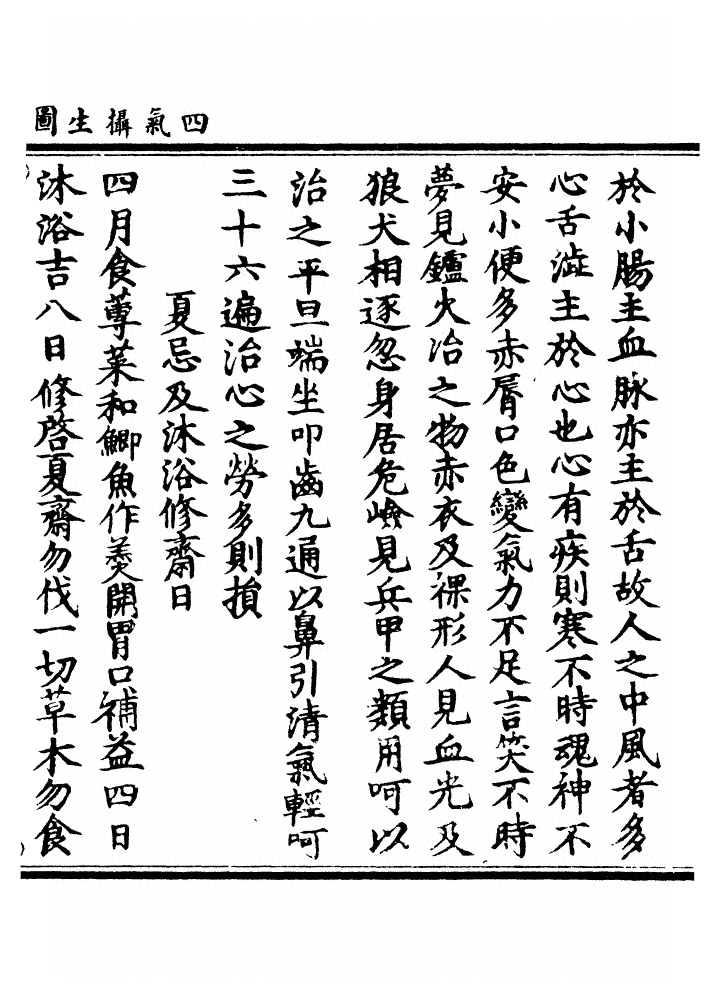 四氣攝生圖
於小腸主血脉亦主於舌故人之中風者多
心舌澁主於心也心有疾則寒不時魂神不
安小便多赤脣口色變氣力不足言笑不時
夢見鑪火冶之物赤衣及裸形人見血光及
狼犬相逐忽身居危嶮見兵甲之類用呵以
治之平旦端坐叩齒九通以鼻引清氣輕呵
三十六遍治心之勞多則損
夏忌及沐浴修齋日
四月食蓴菜和鯽魚作羮開胃口補益四日
沐浴吉八日修啓夏齋勿伐一切草木勿食